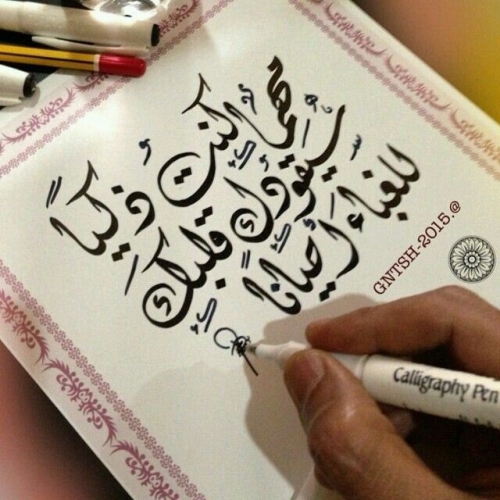 مهما كنت ذكياً
سيقودك قلبك
للغباء أحياناً
GNTSH-2015.@
Calligraphy Pen